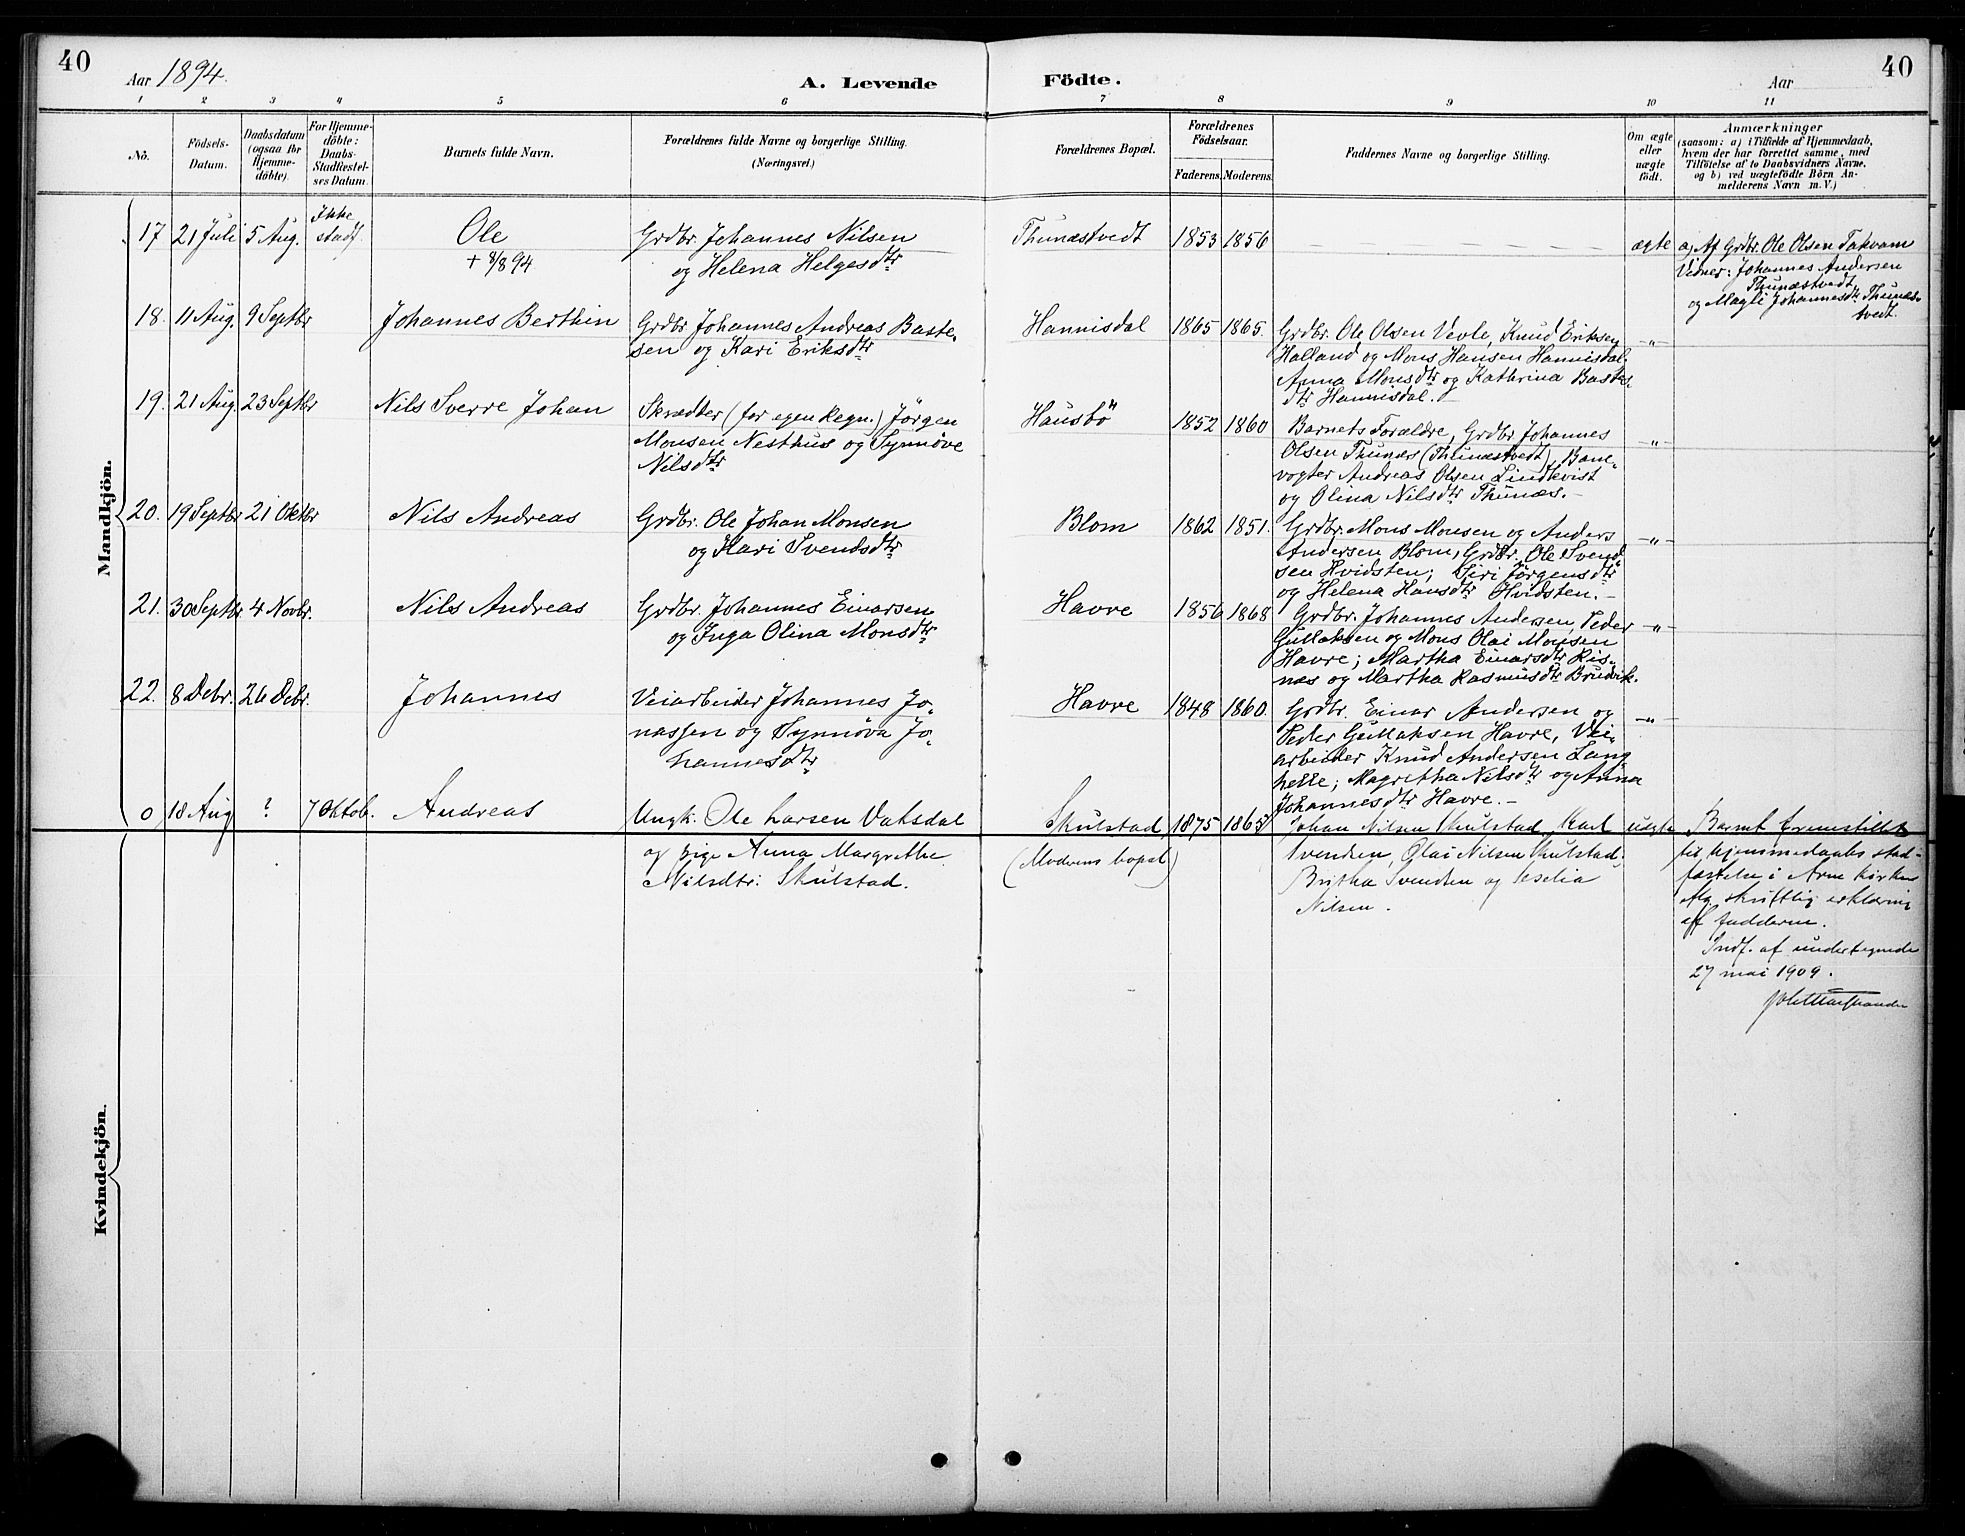 40
Aar 1894.
A. Levende Födte.
Aar
40
1 2 3 4 5 6 7 8 9 10 11
No.
Födsels-
Datum.
Daabsdatum
(ogsaa for
Hjemme-
döbte).
For Hjemme-
döbte:
Daabs-
Stadfæstel-
ses Datum.
Barnets fulde Navn.
Forældrenes fulde Navne og borgerlige Stilling.
(Næringsvei.)
Forældrenes Bopæl.
Forældrenes
Födselsaar.
Faderens. Moderens.
Faddernes Navne og borgerlige Stilling.
Om ægte
eller
uægte
födt.
Anmærkninger
(saasom: a) i Tilfælde af Hjemmedaab,
hvem der har forrettet samme, med
Tilföielse af to Daabsvidners Navne.
og b) ved uægtefödte Börn An-
melderens Navn m.V.)
Mandkjön.
17 21 Juli 5 Aug. Ikke
stadf.
Ole
+ 8/8 94
Grdbr. Johannes Nilsen
og Helena Helgesdtr
Thunæstvedt 1853 1856
ægte
a, Af Grdbr. Ole Olsen Takvam
Vidner: Johannes Andersen
Thunæstvedt
og Magli Johannesdtr Thunæs-
tvedt.
18. 11 Aug. 9 Septbr Johannes Berthin
Grdbr. Johannes Andreas Baste-
sen og Kari Eriksdtr
Hannisdal 1865 1865.
Grdbr. Ole Olsen Vevle, Knud Eriksen
Halland og Mons Hansen Hannisdal.
Anna Monsdtr og Kathrina Bastes-
dtr Hannisdal. –
–„–
19. 21 Aug. 23 Septbr Nils Sverre Johan
Skrædder (for egen Regn.) Jörgen
Monsen Nesthus og Synnöve
Nilsdtr
Hausbö 1852 1860
Barnets Forældre, Grdbr. Johannes
Olsen Thunæs (Thunæstvedt), Bane-
vogter Andreas Olsen Lindkvist
og Olina Nilsdtr Thunæs. –
–„–
20. 19 Septbr 21 Oktbr Nils Andreas
Grdbr. Ole Johan Monsen
og Kari Svendsdtr
Blom 1862 1851.
Grdbr. Mons Monsen og Anders
Andersen Blom, Grdbr. Ole Svend-
sen Hvidsten; Siri Jörgensdtr
og Helena Hansdtr Hvidsten. –
–„–
21. 30 Septbr 4 Novbr. Nils Andreas
Grdbr. Johannes Einarsen
og Inga Olina Monsdtr
Havre 1856 1868
Grdbr. Johannes Andersen, Peder
Gullaksen og Mons Olai Monsen
Havre; Martha Einarsdtr Ris-
næs og Martha Rasmusdtr Brudvik.
–„–
22. 8 Debr. 26 Debr. Johannes
Veiarbeider Johannes Jo-
nassen og Synnöva Jo-
hannesdtr
Havre 1848 1860.
Grdbr. Einar Andersen og
Peder Gullaksen Havre, Vei-
arbeider Knud Andersen Lang-
helle; Magretha Nilsdtr og Anna
Johannesdtr Havre. –
–„–
0 18 Aug ? 7 Oktob. Andreas
Ungk. Ole Larsen Vaksdal
og pige Anna Margrethe
Nilsdtr. Skulstad.
Skulstad
(Moderens bopæl)
1875 1865
Johan Nilsen Skulstad, Karl
Svendsen, Olai Nilsen Skulstad.
Britha Svendsen og Seselia
Nilsen.
uægte
Barnet fremstillet
til hjemmedaabs stad-
fæstelse i Arne kirke
iflg. skriftlig erklæring
af fadderne.
Indf. af undertegnede
27 mai 1909.
Kvindekjön.